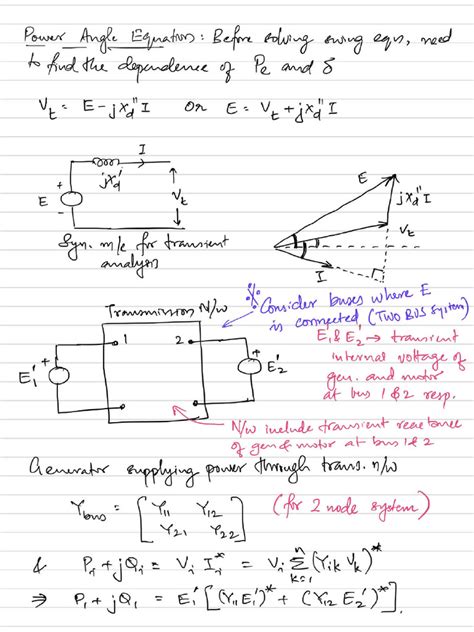 Power Angle Equations: Before solving swing eqn, need
to find the dependence of Pe and δ
Vt = E - jXd"I or E = Vt + jXd"I
I
+
jXd'
E
Vt
-
Syn. m/c for transient
analysis
E
jXd"I
Vt
I
Transmission N/w
Consider buses where E
is connected (TWO BUS System)
E1 & E2' → transient
internal voltage of
gen. and motor
at bus 1 & 2 resp.
1
2
+
+
E1'
E2'
N/w include transient reactance
of gen & motor at bus 1 & 2
Generator supplying power through trans. n/w
Ybus = [Y11 Y12
Y21 Y22] (for 2 node system)
& Pi + jQi = Vi Ii* = Vi Σ(Yik Vk)*
n
k=1
⇒ P1 + jQ1 = E1' [(Y11 E1')* + (Y12 E2')*].